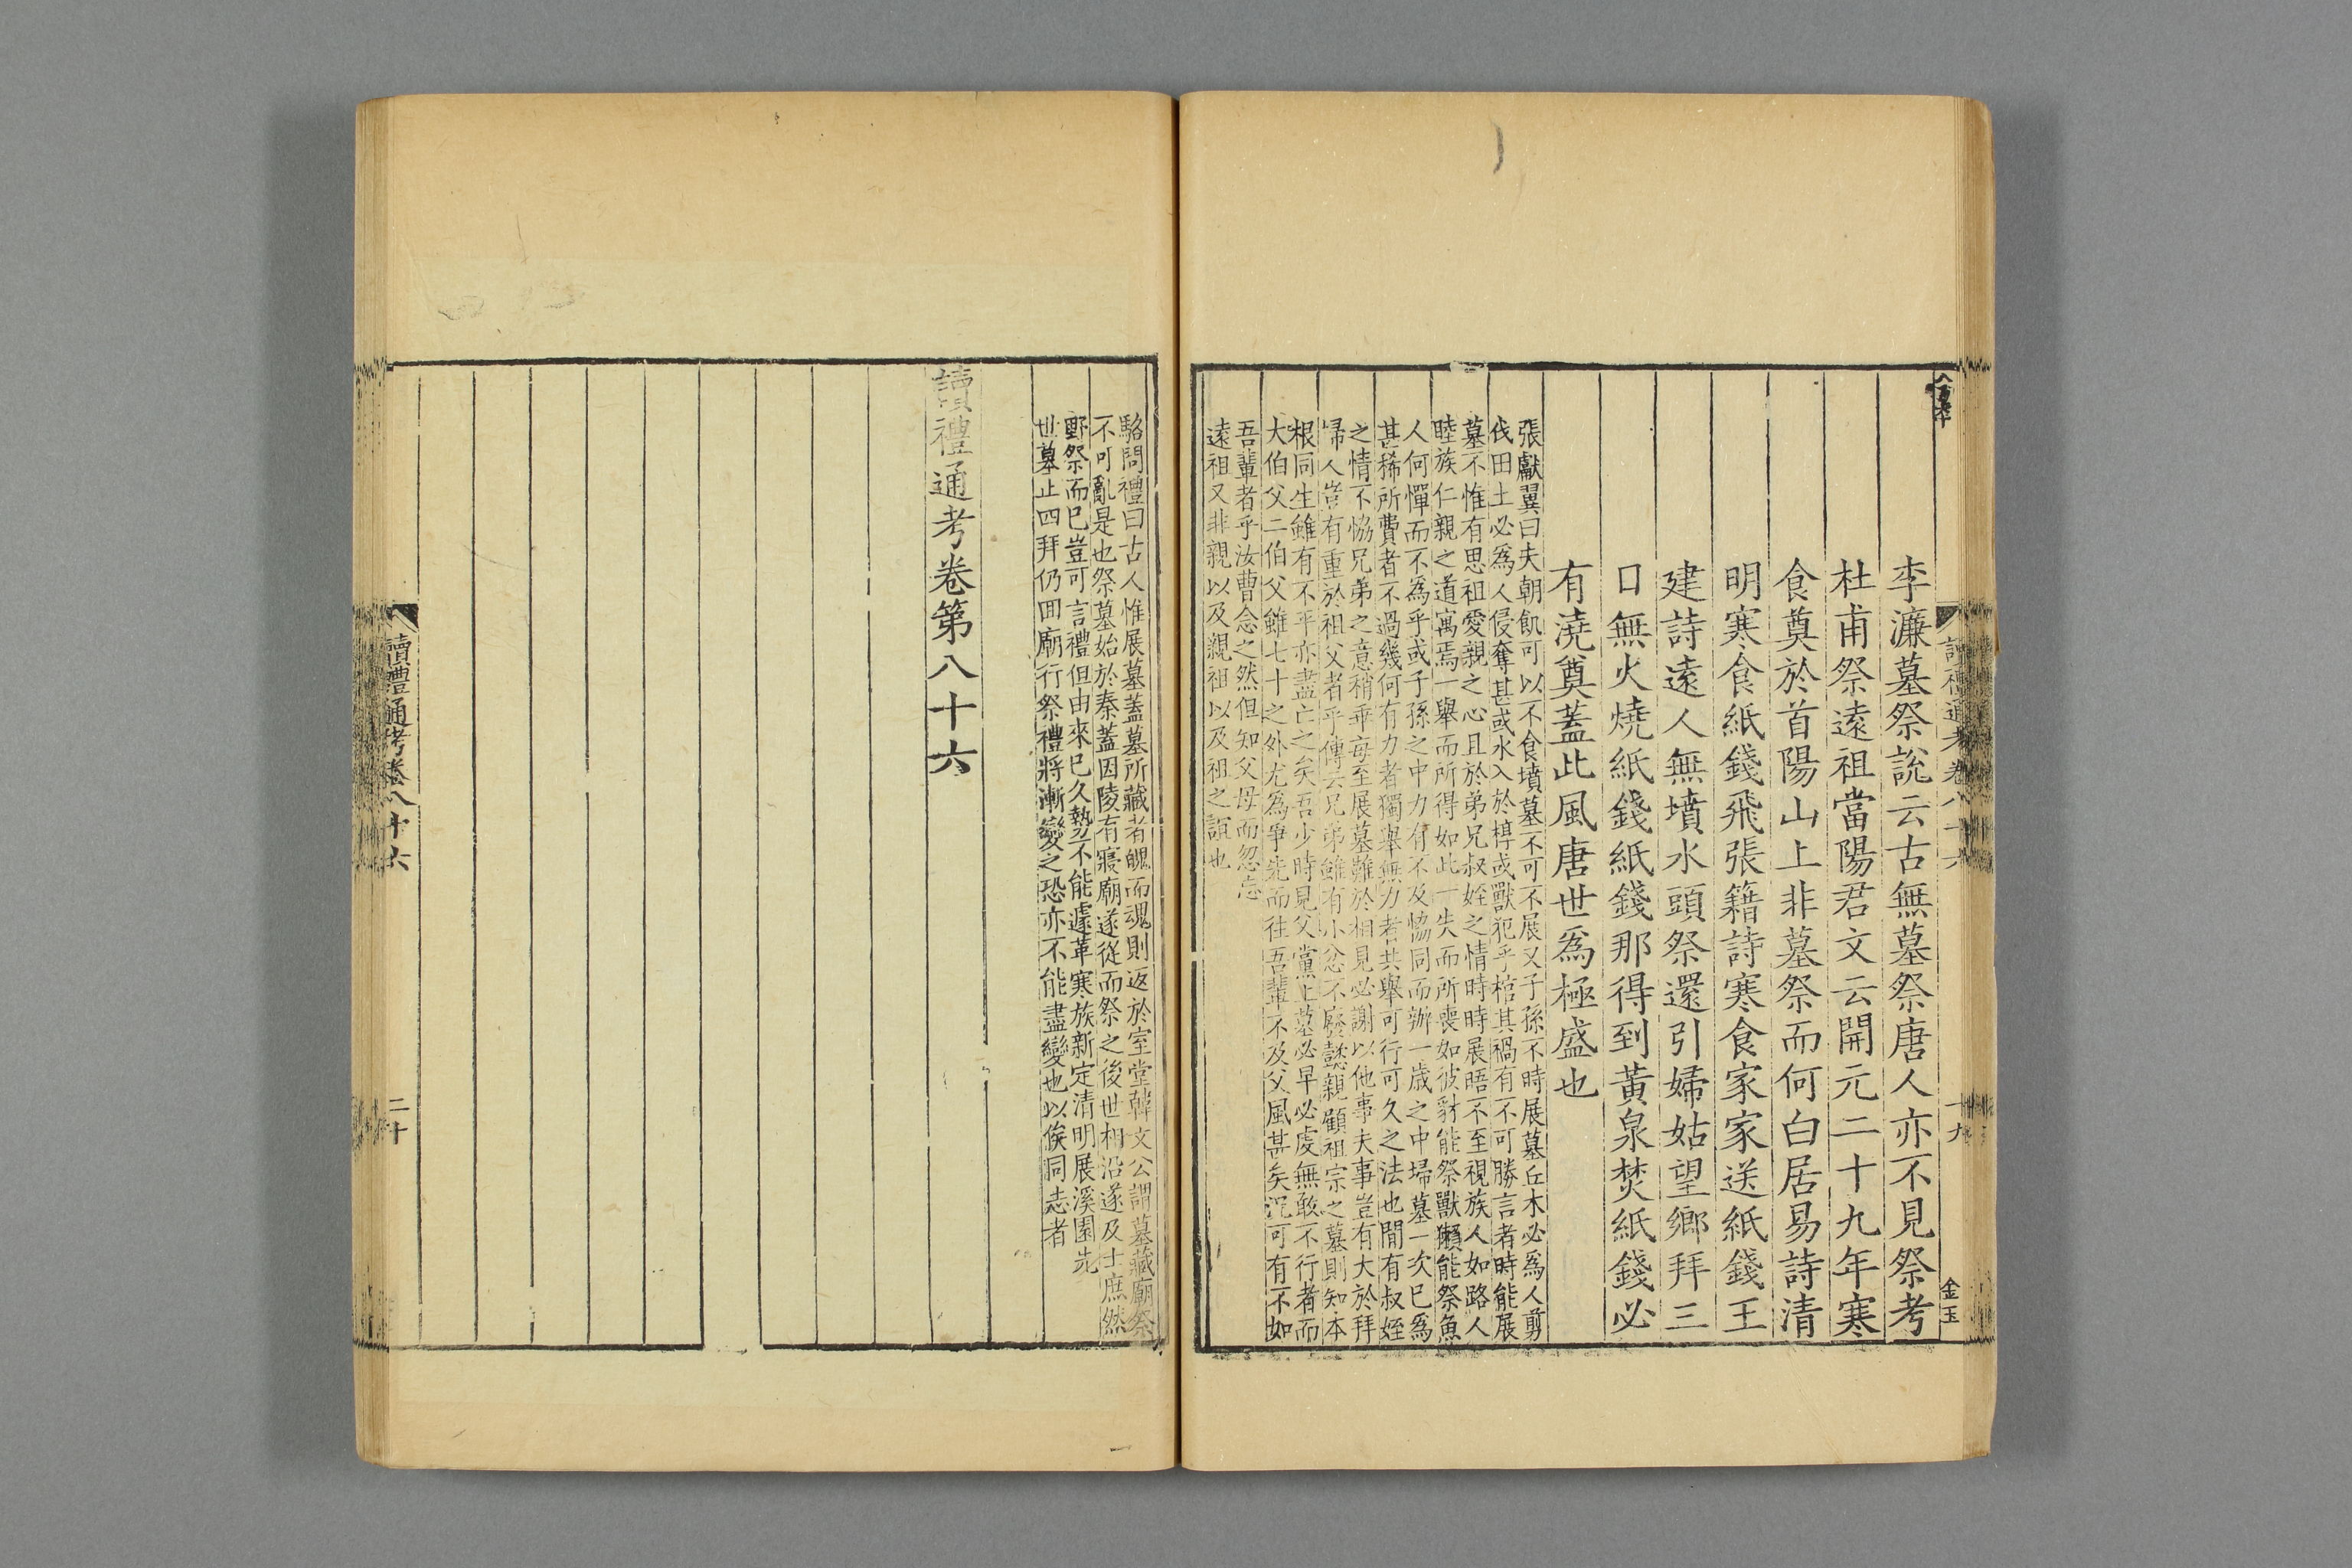 李濂墓祭說云古無墓祭唐人亦不見祭考
杜甫祭遠祖當陽君文云開元二十九年寒
食奠於首陽山上非墓祭而何白居易詩清
明寒食紙錢飛張籍詩寒食家家送紙錢王
建詩遠人無墳水頭祭還引婦姑望鄉拜三
口無火燒紙錢紙錢那得到黃泉焚紙錢必
有澆奠蓋此風唐世爲極盛也
張獻翼曰夫朝飢可以不食墳墓不可不展又子孫不時展墓丘木必爲人剪
伐田土必爲人侵奪甚或水入於椁或獸犯乎棺其禍有不可勝言者時能展
墓不惟有思祖愛親之心且於弟兄叔姪之情時時展晤不至視族人如路人
睦族仁親之道寓焉一舉而所得如此一失而所喪如彼豺能祭獸獺能祭魚
人何憚而不爲乎或子孫之中力有不及恊同而辦一歲之中埽墓一次已爲
甚稀所費者不過幾何有力者獨舉無力者共舉可行可久之法也間有叔姪
之情不恊兄弟之意稍乖每至展墓難於相見必謝以他事夫事豈有大於拜
埽人豈有重於祖父者乎傳云兄弟雖有小忿不廢懿親顧祖宗之墓則知本
根同生雖有不平亦盡亡之矣吾少時見父黨上墓必早必虔無敢不行者而
大伯父二伯父雖七十之外尤爲爭先而往吾輩不及父風甚矣況可有不如
吾輩者乎汝曹念之然但知父母而忽忘
遠祖又非親以及親祖以及祖之誼也
讀禮通考卷八十六
十九
金玉
駱問禮曰古人惟展墓蓋墓所藏者魄而魂則返於室堂韓文公謂墓藏廟祭
不可亂是也祭墓始於秦蓋因陵有寢廟遂從而祭之後世相沿遂及士庶然
野祭而已豈可言禮但由來已久勢不能遽革寒族新定清明展溪園先
世墓止四拜仍回廟行祭禮將漸變之恐亦不能盡變也以俟同志者
讀禮通考卷第八十六
讀禮通考卷八十六
二十